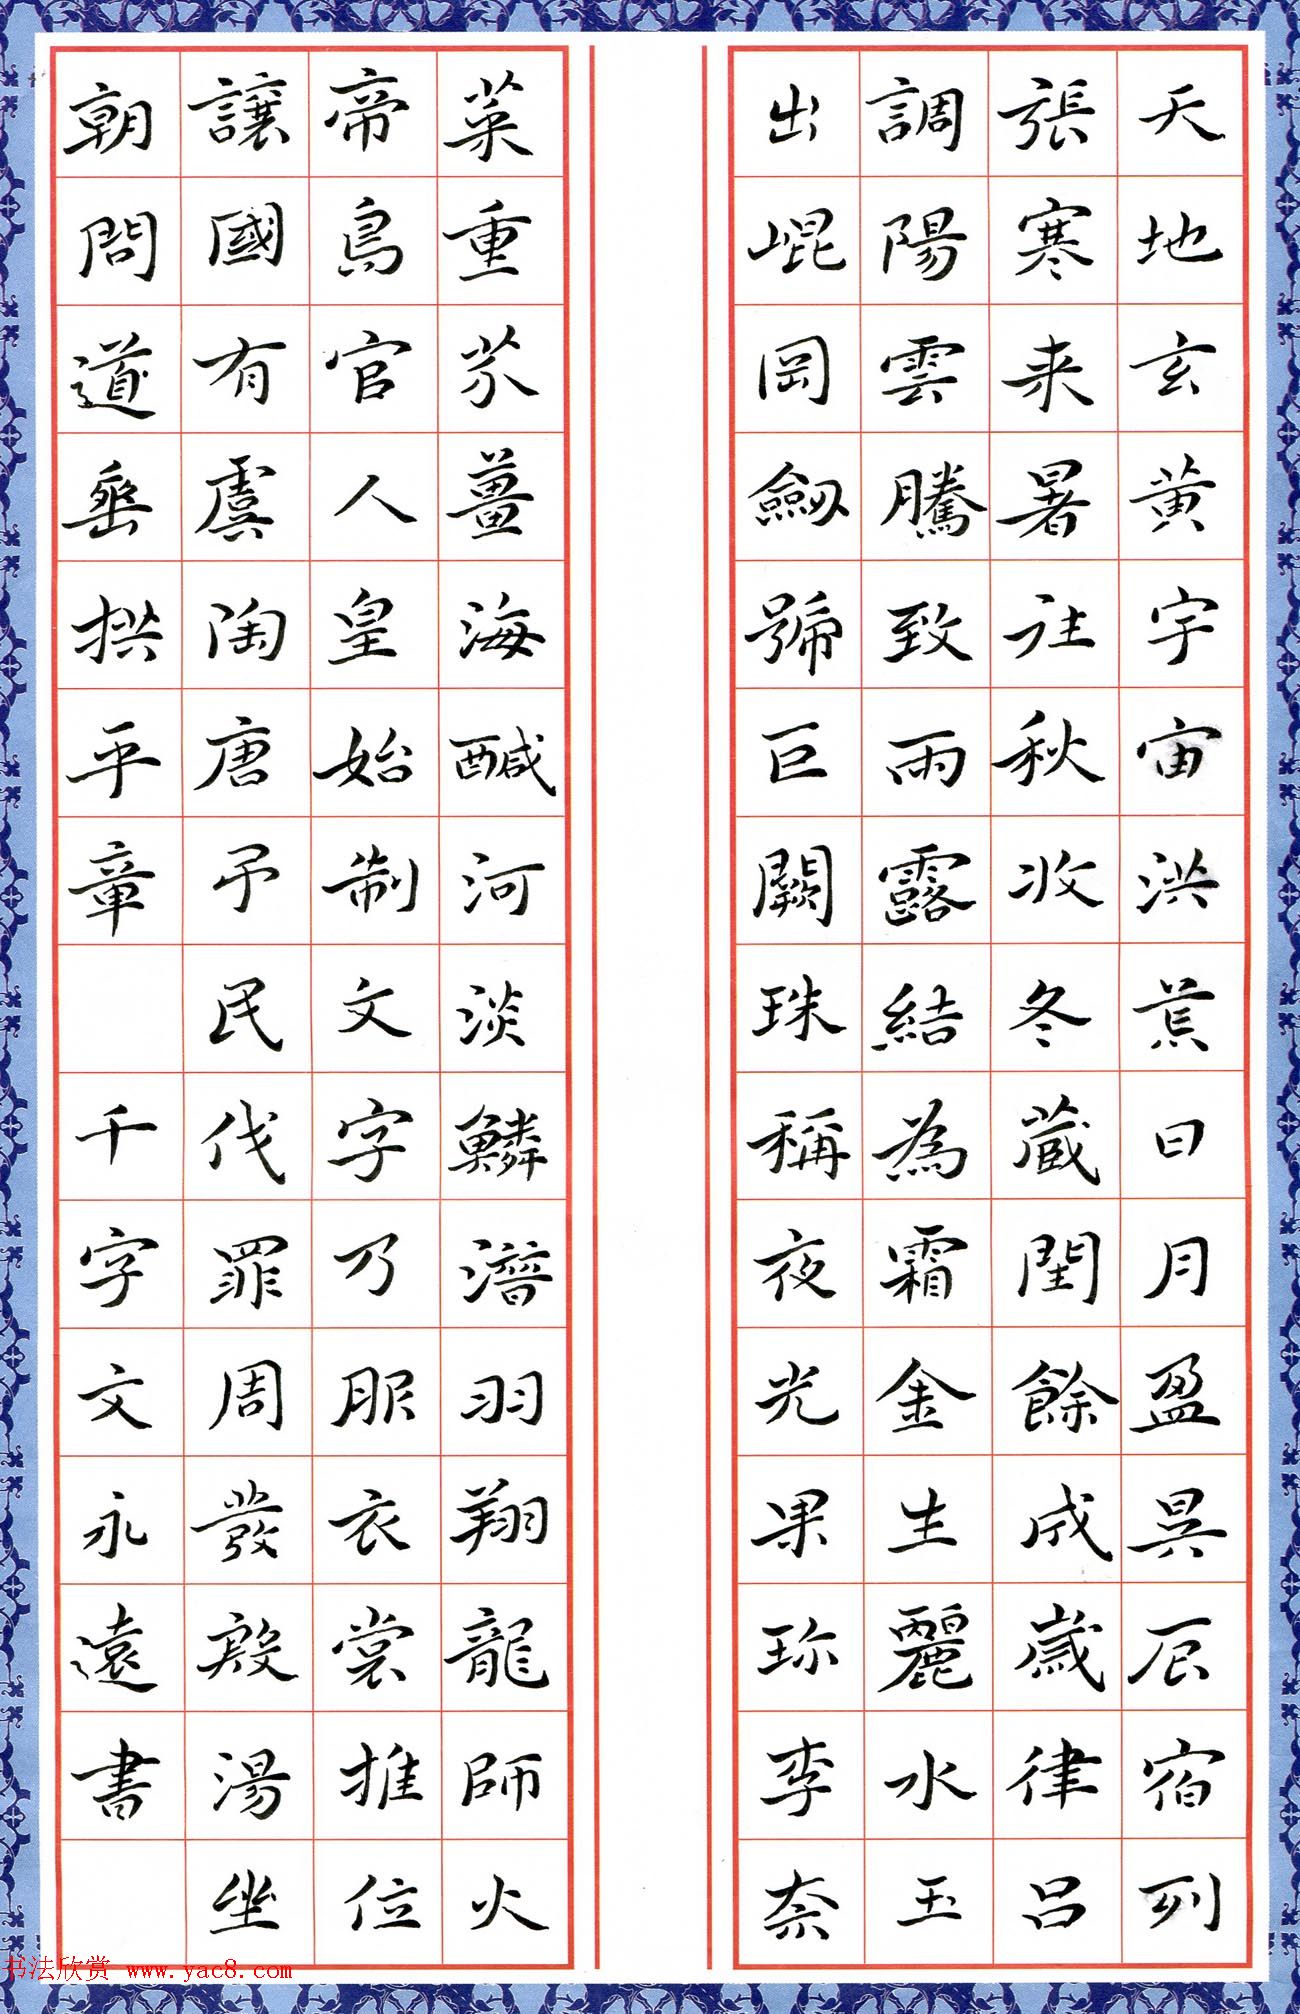 天地玄黃宇宙洪荒日月盈昃辰宿列
張寒来暑往秋收冬蔵閏餘成歲律呂
調陽雲騰致雨露結為霜金生麗水玉
出崐岡劒號巨闕珠稱夜光果珎李柰
菜重芥薑海醎河淡鱗潛羽翔龍師火
帝鳥官人皇始制文字乃服衣裳推位
讓國有虞陶唐弔民伐罪周發殷湯坐
朝問道垂拱平章 千字文永遠書
书法欣赏 www.yac8.com